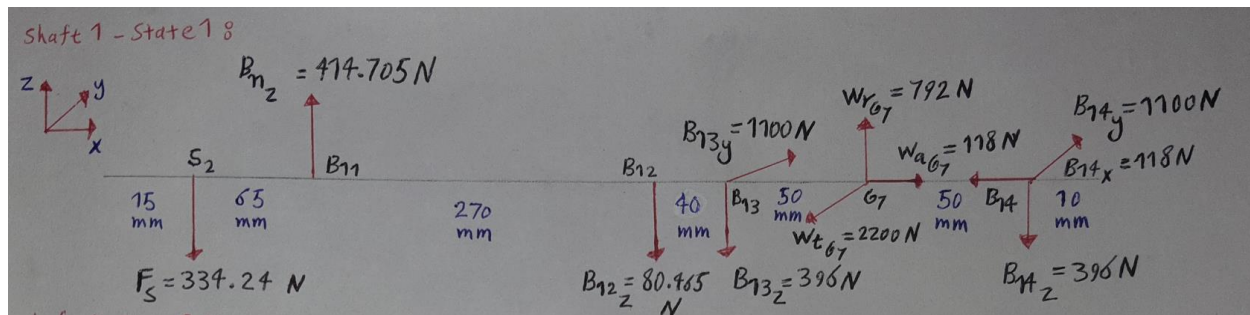 Shaft 1 - State 1 :
B11z = 414.705 N
Z
y
x
S2
B11
B12
B13y = 1100 N
WrG7 = 792 N
WaG7 = 118 N
B14y = 1100 N
B14x = 118 N
15 mm
65 mm
270 mm
40 mm
B13
50 mm
G7
50 mm
B14
10 mm
WtG7 = 2200 N
Fs = 334.24 N
B12z = 80.465 N
B13z = 396 N
B14z = 396 N